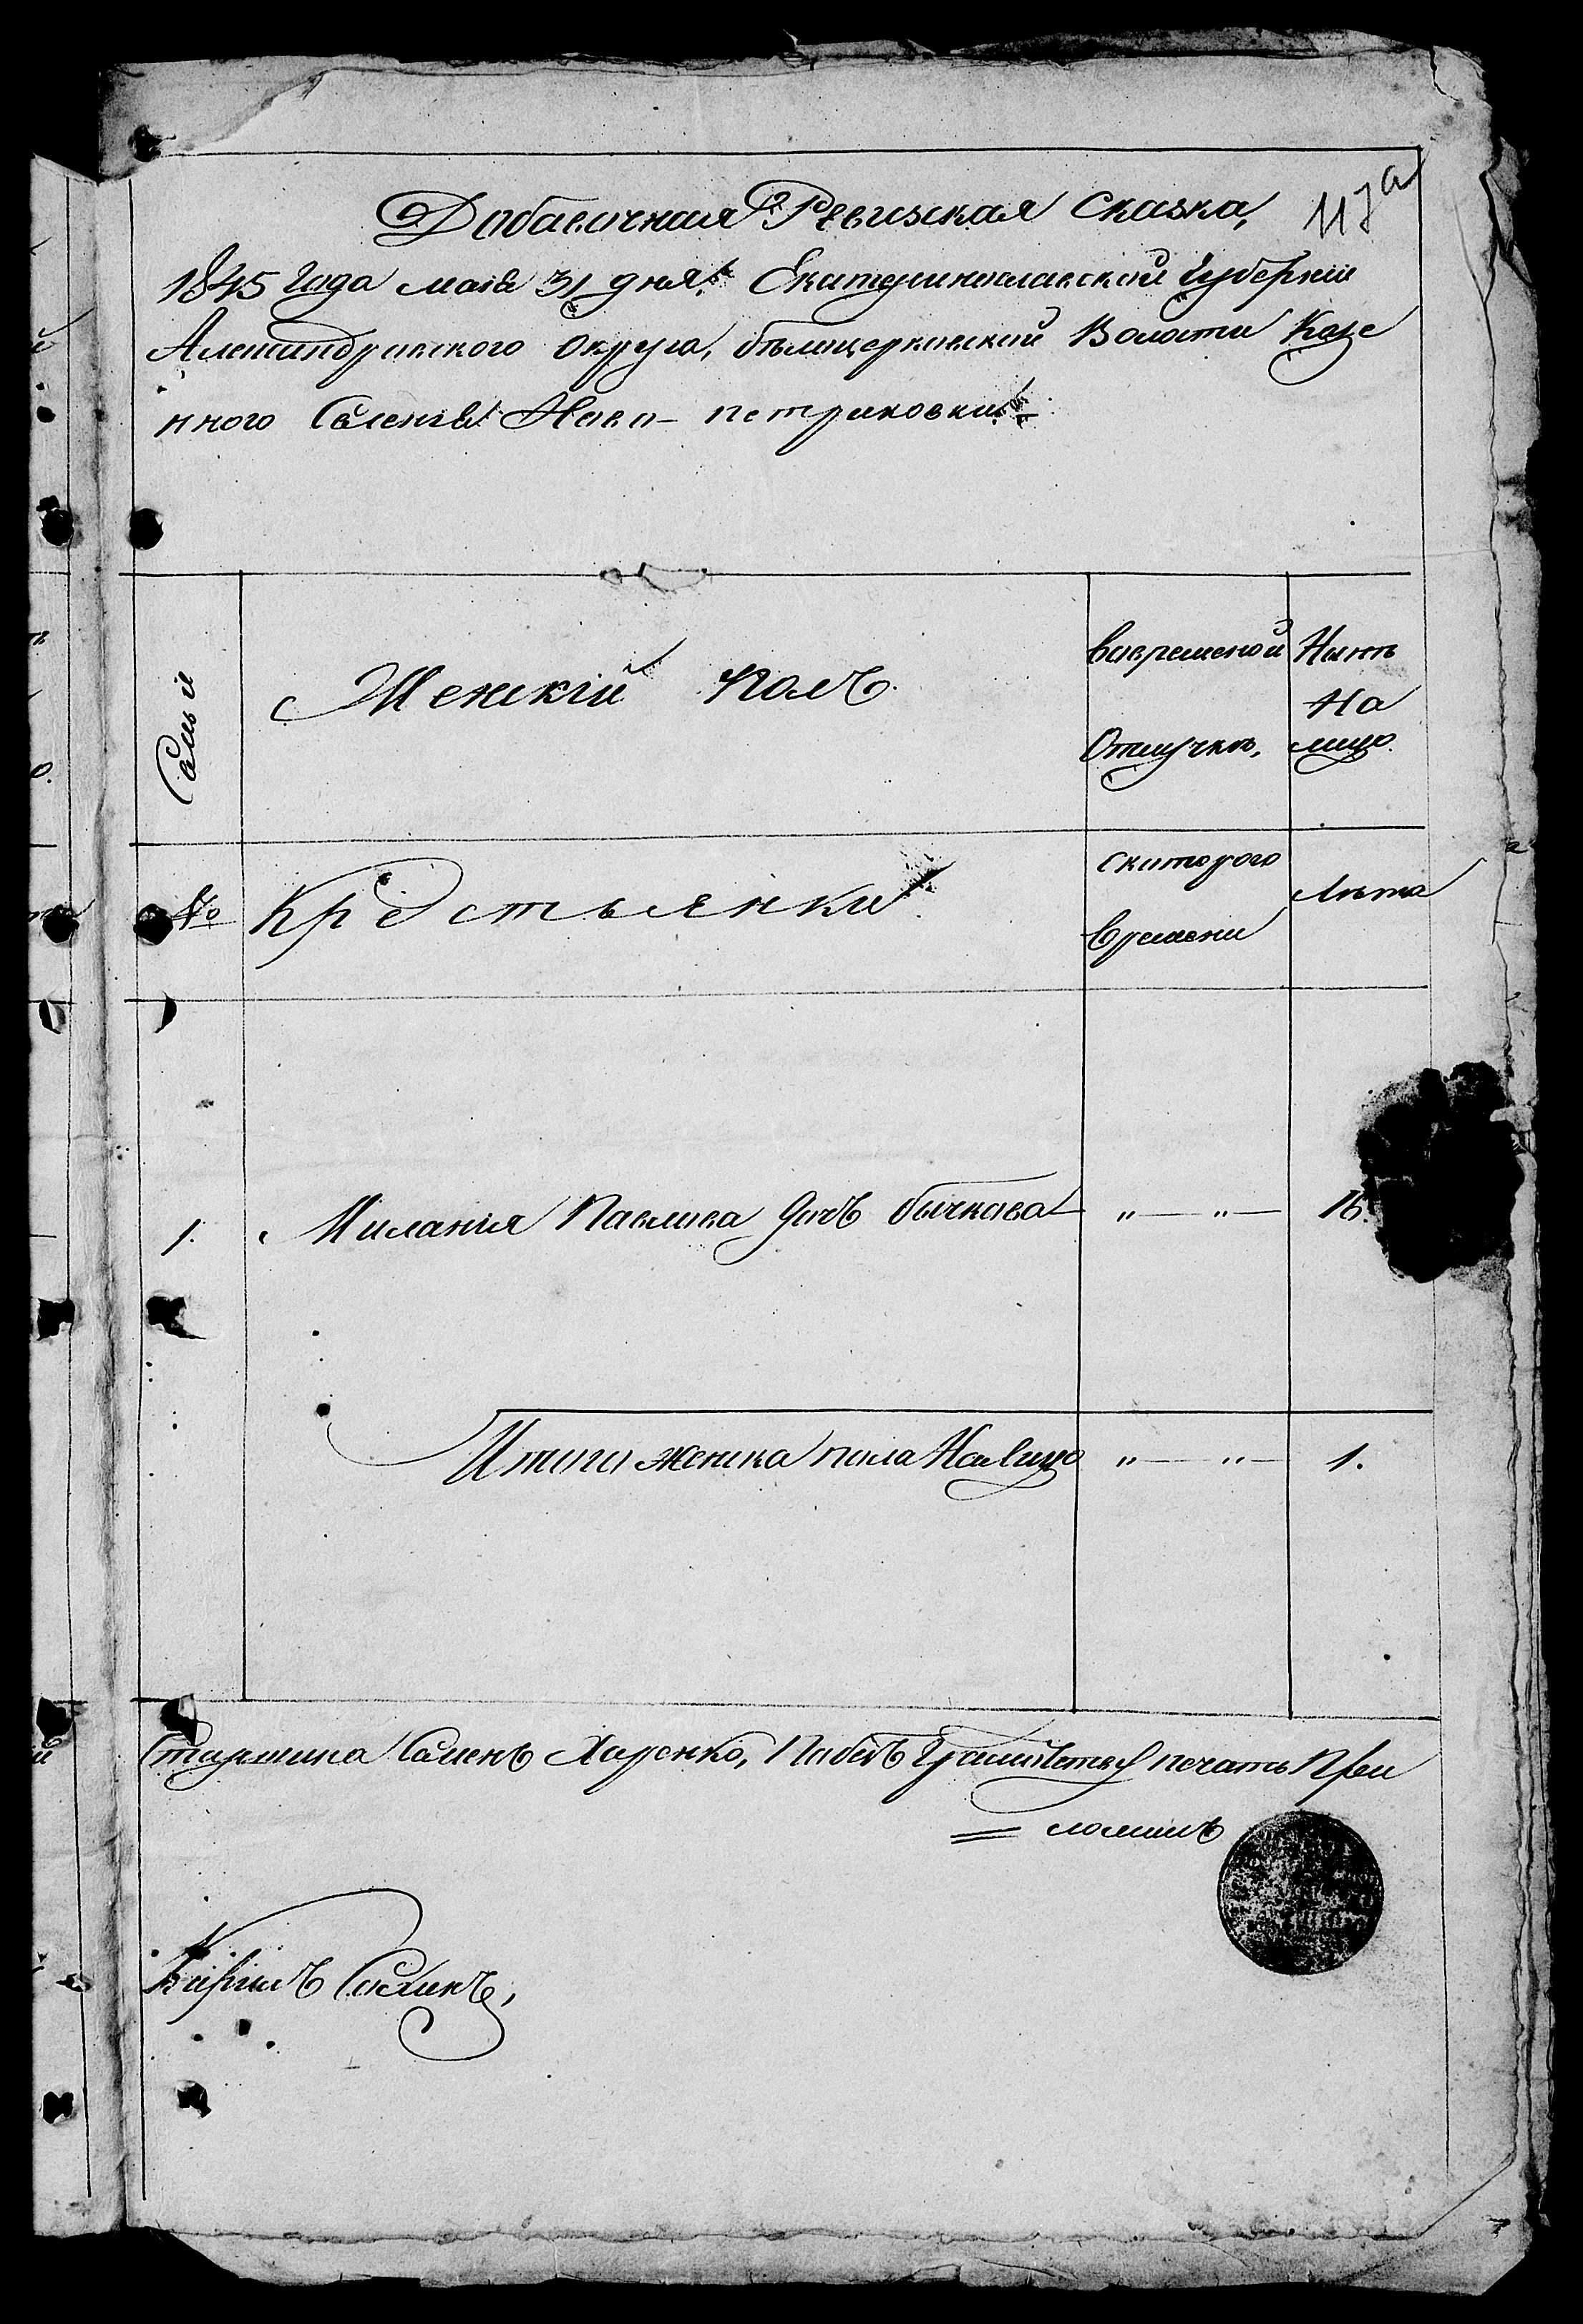 Добавочная Ревизская Сказка,
117а
1845 Года мая 31 дня. Екатеринославской Губерніи
Александровского Округа, бѣлоцерковской Волости Казе
нного Селенія Ново-петриковки
Семьи
Женскій полъ
вовременой
Отлучкѣ,
Нынѣ
На
лицо.
№
Крестьянки
скоторого
Времени
Лѣта
1.
Миланія Павлова дочь бычкова
"—"—
16.
Итого женска пола Налицо
"—"—
1.
Старшина Семенъ Харенко, печать При
ложилъ